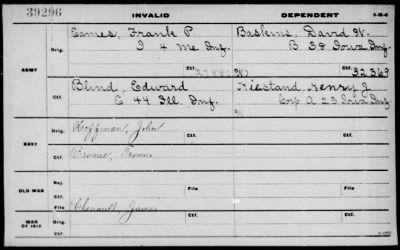 39296
INVALID DEPENDENT
ARMY
Orig. Eames, Frank P. Baskins, David W.
I 4 Me Inf. B 38 Iowa Inf.
Ctf. Ctf. 32363
Ctf. Blind, Edward Hiestand, Henry J.
E 44 Ill. Inf. Corp A 23 Iowa Inf.
NAVY
Orig. Hoffman, John Ctf.
Ctf. Browne, Thomas
OLD WAR
Rej.
Ctf. File File
WAR OF 1812
Orig. Chenault, James
Ctf. Ctf.